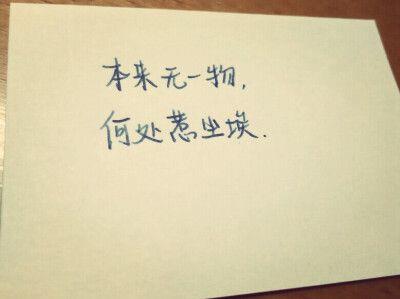 本来无一物,
何处惹尘埃.